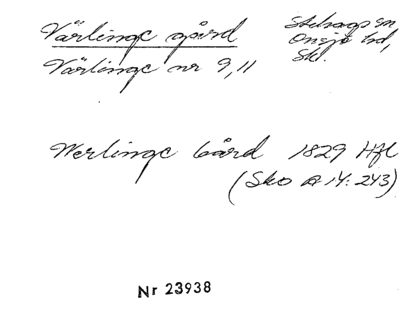 Värlinge gård
Stehags sn,
Onsjö hd,
Skl.
Värlinge nr 9, 11
Werlinge Gård 1829 Hfl
(Sko A 14:243)
Nr 23938